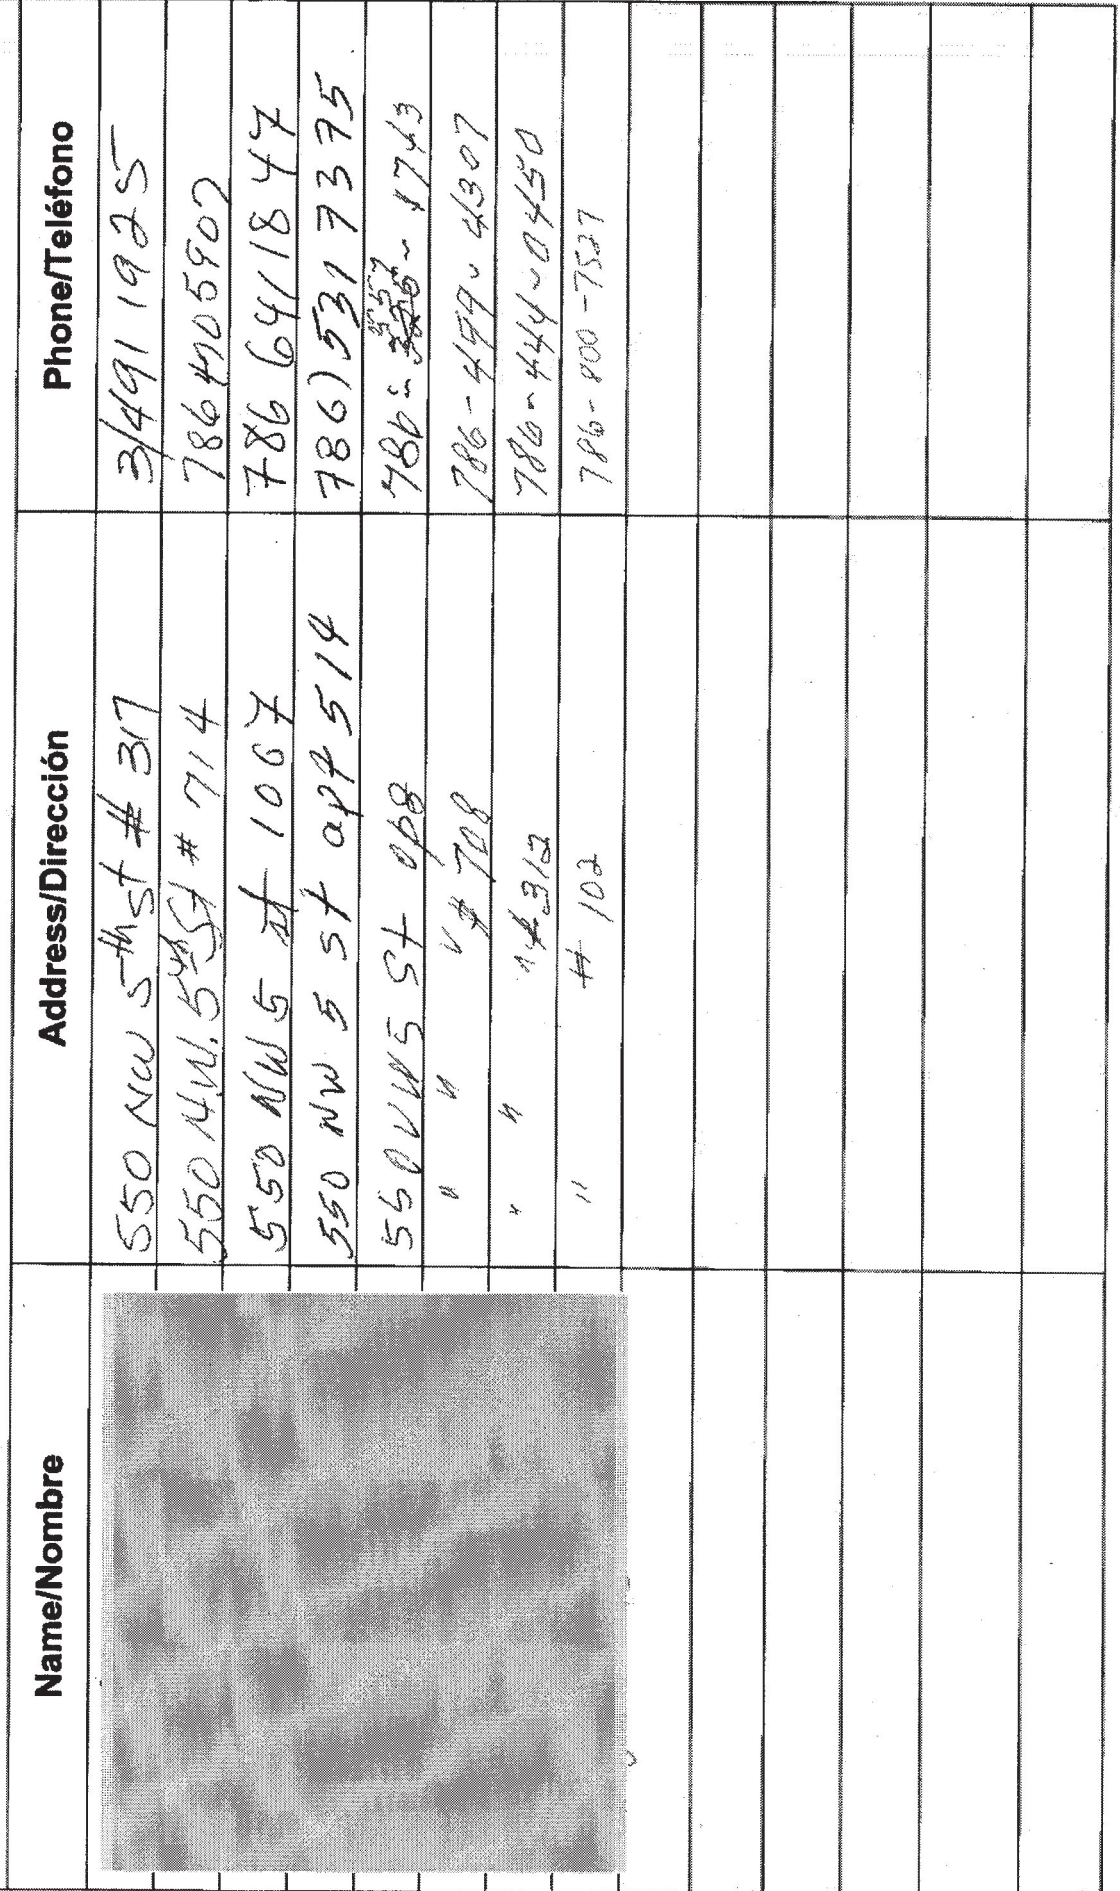 Name/Nombre Address/Dirección Phone/Teléfono
550 NW 5th St # 317 3/491 1925
550 N.W. 5th St # 714 786 4705902
550 NW 5 st 1067 786 6411847
550 NW 5 st apt 514 786) 531 7375
550 NW 5 St 786- 1743
" " " # 708 786-499-4307
" " " #312 786-444-0450
" # 102 786-800-7527